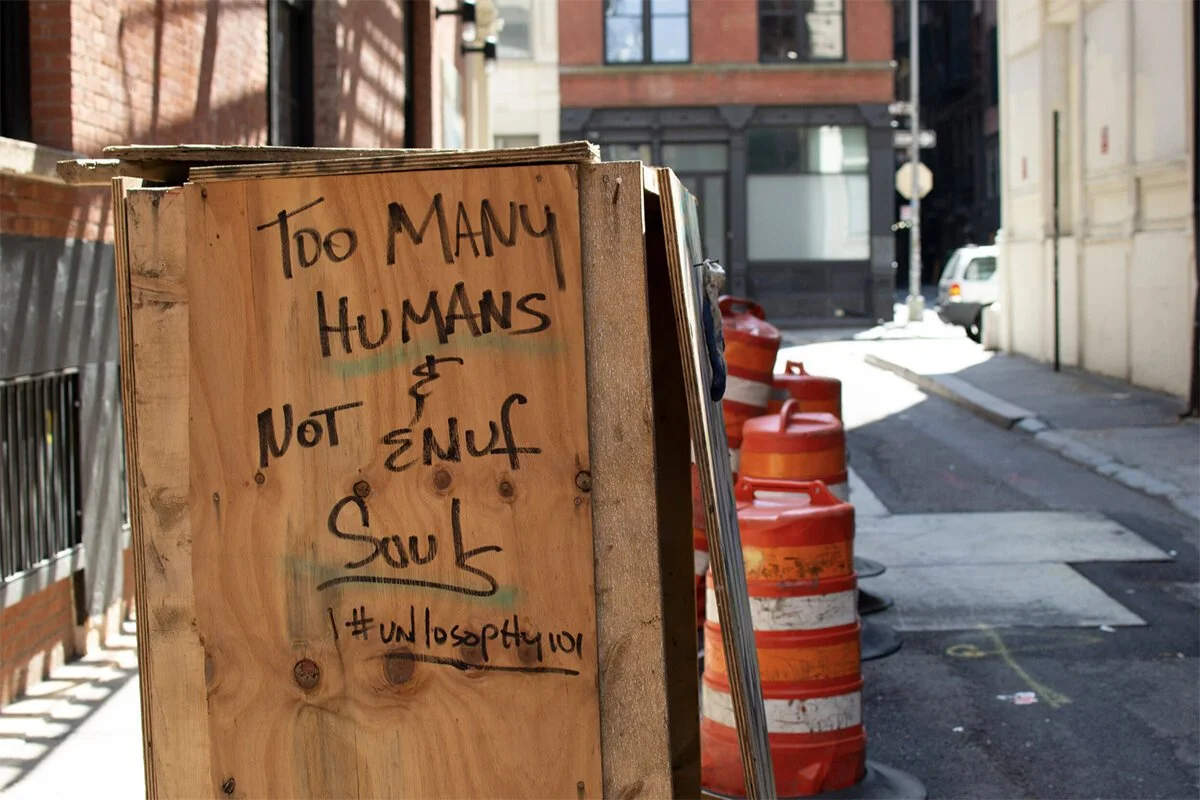 Too MANY
HUMANS
&
NOT ENUf
SouL
#unlosopHy101